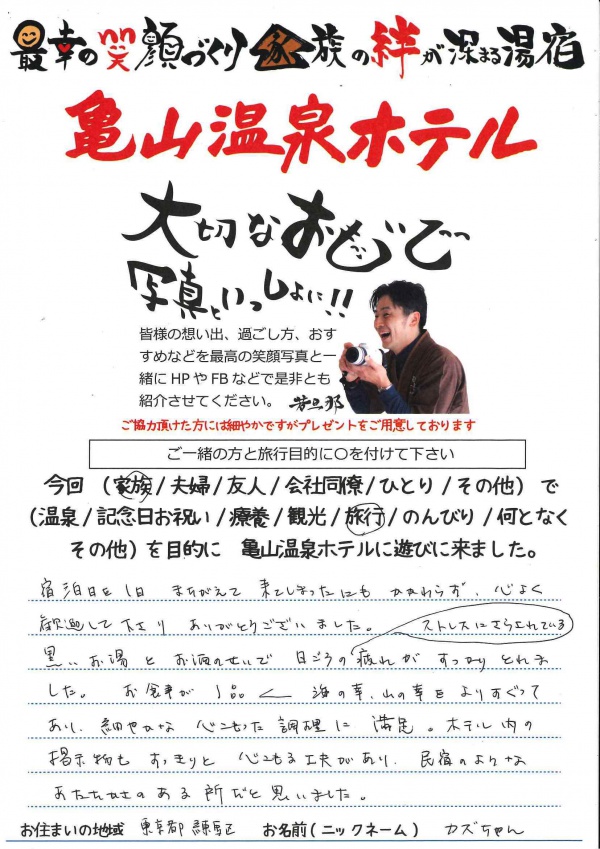 最幸の笑顔づくり 家族の絆が深まる湯宿
亀山温泉ホテル
大切なおもいで
写真といっしょに!!
皆様の想い出、過ごし方、おす
すめなどを最高の笑顔写真と一
緒に HP や FB などで是非とも
紹介させてください。 若旦那
ご協力頂けた方には細やかですがプレゼントをご用意しております
ご一緒の方と旅行目的に〇を付けて下さい
今回 (家族/夫婦/友人/会社同僚/ひとり/その他) で
(温泉/記念日お祝い/療養/観光/旅行/のんびり/何となく
その他) を目的に 亀山温泉ホテルに遊びに来ました。
宿泊日を1日 まちがえて 来てしまったにも かかわらず、心よく
歓迎して下さり ありがとうございました。
ストレスにさらされている
黒いお湯と お酒のせいで 日ごろの 疲れが すっかり とれま
した。 お食事が 1品 海の幸、山の幸を よりすぐって
あり、細やかな 心こもった 調理に 満足。ホテル内の
掲示物も すっきりと 心こもる工夫があり、民宿のような
あたたかさのある 所だと思いました。
お住まいの地域 東京都 練馬区 お名前(ニックネーム) カズちゃん